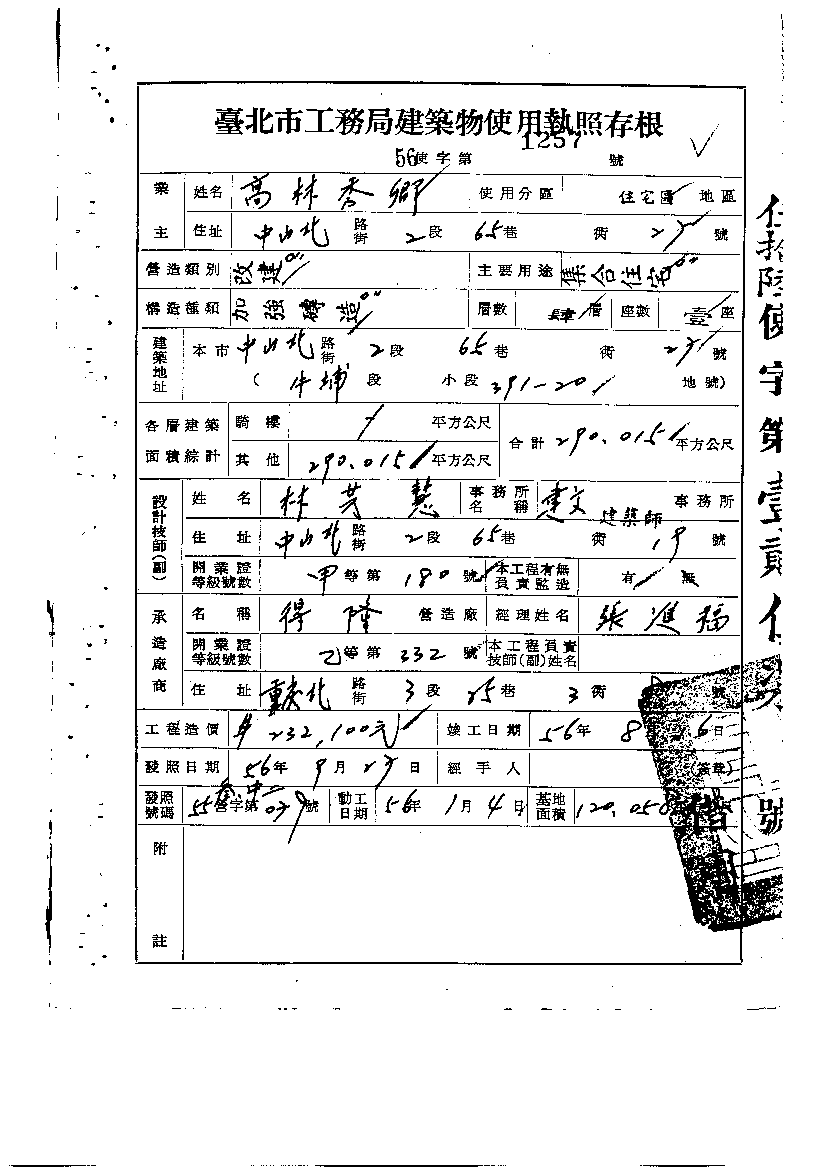 臺北市工務局建築物使用執照存根
56使字第 1257 號
業主 姓名 高林秀鄉 使用分區 住宅區 地區
住址 中山北路街 2段 65巷 衖 號
營造類別 改建 主要用途 集合住宅
構造種類 加強磚造 層數 肆層 座數 壹座
建築地址 本市 中山北路街 2段 65巷 衖 號
( 牛埔段 小段 391-20 地號)
各層建築面積綜計 騎樓 / 平方公尺 合計 290.015 平方公尺
其他 290.015 平方公尺
設計技師(副) 姓名 林芳慧 事務所名稱 建文建築師事務所
住址 中山北路街 2段 65巷 衖 19號
開業證等級號數 甲等第 180 號 本工程有無負責監造 有 無
承造廠商 名稱 得隆 營造廠 經理姓名 張進福
開業證等級號數 乙等第 332 號 本工程負責技師(副)姓名
住址 重慶北路街 3段 25巷 3衖 號
工程造價 232,100元 竣工日期 56年 8 6日
發照日期 56年 9月 27日 經手人 (簽章)
發照號碼 55營字第 039號 動工日期 56年 1月 4日 基地面積 120.058
附註
伍拾陸使字第壹貳伍 號